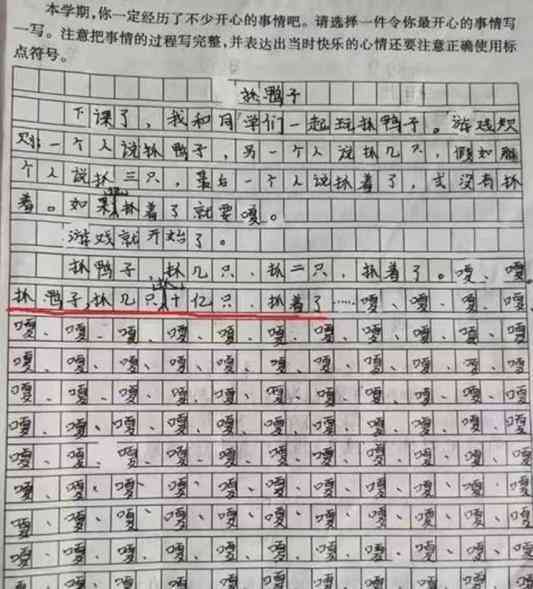 本学期,你一定经历了不少开心的事情吧。请选择一件令你最开心的事情写
一写。注意把事情的过程写完整,并表达出当时快乐的心情还要注意正确使用标
点符号。
抓鸭子
下课了,我和同学们一起玩抓鸭子。游戏规
则:一个人说抓鸭子,另一个人说抓几只,假如那
个人说抓三只,最后一个人说抓着了,或没有抓
着。如果抓着了就要嘎。
游戏就开始了。
抓鸭子、抓几只、抓二只、抓着了。嘎、嘎。
抓鸭子,抓几只,抓十亿只、抓着了……嘎、嘎、嘎、嘎、
嘎、嘎、嘎、嘎、嘎、嘎、嘎、嘎、嘎、嘎、嘎
嘎、嘎、嘎、嘎、嘎、嘎、嘎、嘎、嘎、嘎、嘎
嘎、嘎、嘎、嘎、嘎、嘎、嘎、嘎、嘎、嘎、嘎
嘎、嘎、嘎、嘎、嘎、嘎、嘎、嘎、嘎、嘎、嘎
嘎、嘎、嘎、嘎、嘎、嘎、嘎、嘎、嘎、嘎、嘎
嘎、嘎、嘎、嘎、嘎、嘎、嘎、嘎、嘎、嘎、嘎
嘎、嘎、嘎、嘎、嘎、嘎、嘎、嘎、嘎、嘎、嘎
嘎、嘎、嘎、嘎、嘎、嘎、嘎、嘎、嘎、嘎、嘎